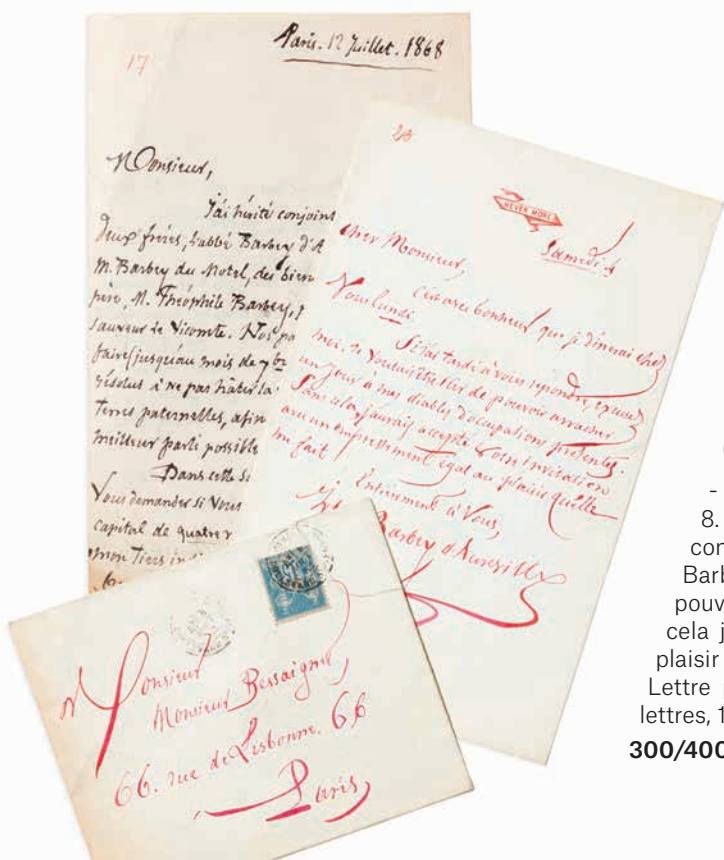 17
Paris. 12 Juillet. 1868
Monsieur,
J'ai hérité conjoint
deux frères, l'abbé Barbey d'A
M. Barbey du Motel, des bien
père, M. Théophile Barbey,
Sauveur le Vicomte. Nos
faire (jusqu'au mois de 7bre
résolus à ne pas hâter la
terres paternelles, afin
meilleur parti possible
Dans cette
Vous demander si Vous
capital de quatre
mon Tiers
20
NEVER MORE
Samedi
Cher Monsieur,
C'est avec bonheur que je dînerai chez
Vous lundi.
Si j'ai tardé à vous répondre, excusez
moi. Je voulais être sûr de pouvoir arracher
un jour à mes diables d'occupations présentes.
Sans cela, j'aurais accepté Votre invitation
avec un empressement égal au plaisir qu'elle
me fait.
Entièrement à Vous,
J. Barbey d'Aurevilly
Monsieur
Monsieur Bessaigne,
66. rue de Lisbonne. 66
Paris
-
8.
con
Barb
pouv
cela j
plaisir
Lettre
lettres, 1
300/400